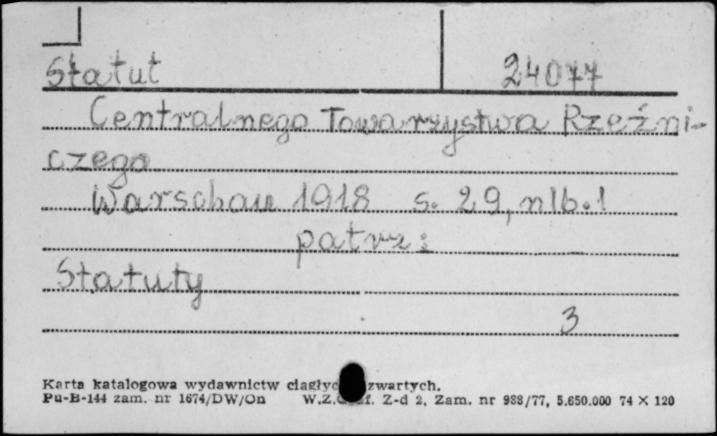 Statut 24077
Centralnego Towarzystwa Rzeźni-
czego
Warschau 1918 s. 29, nlb. 1
patrz:
Statuty
3
Karta katalogowa wydawnictw ciągłyc zwartych.
Pu-B-144 zam. nr 1674/DW/On W.Z. f. Z-d 2, Zam. nr 988/77, 5.650.000 74 X 120